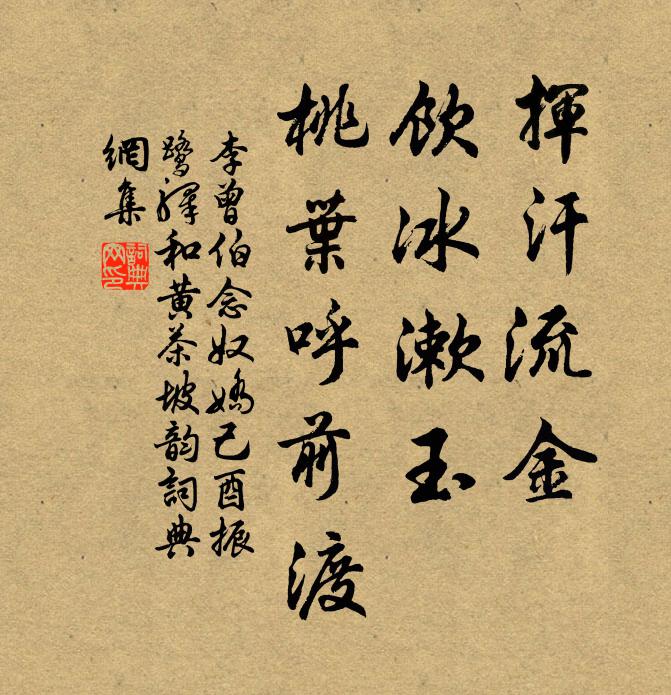 揮汗流金
飲冰漱玉
桃葉呼前渡
李曾伯念奴嬌己酉振
鷺驛和黃茶坡韵詞典
網集
詞典
网印